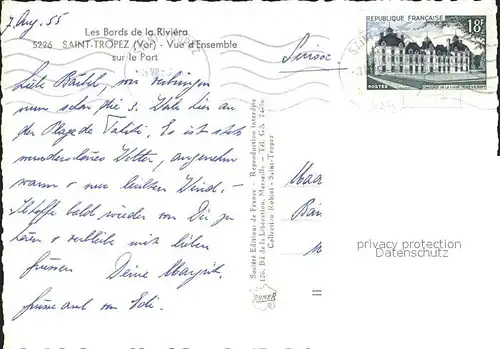 7. Aug. 55
Les Bords de la Riviéra
5226 SAINT-TROPEZ (Var) - Vue d'Ensemble
sur le Port
RÉPUBLIQUE FRANÇAISE
18F
POSTES
Suisse
Liebe Bärbel, wir verbringen
nun schon die 3. Woche hier an
der Plage de Tahiti. Es ist stets
wunderschönes Wetter, angenehm
warm + nur leichten Wind. –
Ich hoffe bald wieder von Dir zu
hören + verbleibe mit lieben
Grüssen Deine Margrit.
Grüsse auch von Edi.
Société Editions de France - Reproduction interdite
126, Bd de la Libération, Marseille - Tél. GA.
Collection Robiot - Saint-Tropez
privacy protection
Datenschutz